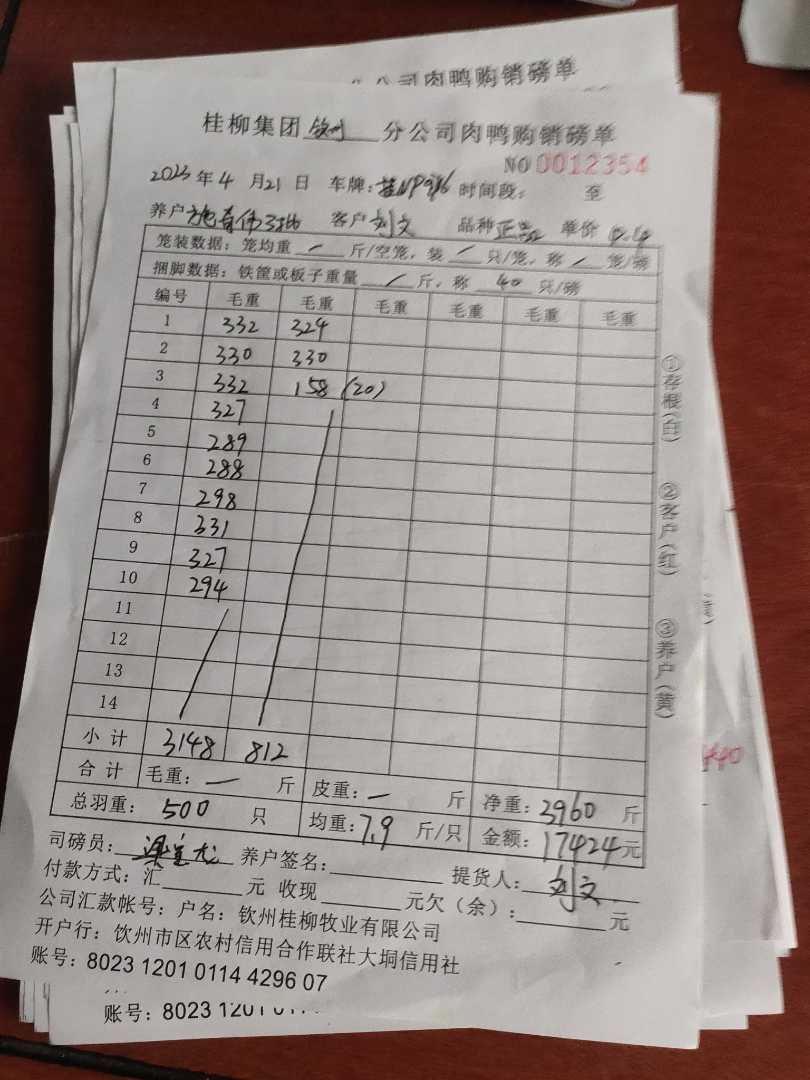 分公司肉鸭购销磅单
桂柳集团钦州分公司肉鸭购销磅单
NO 0012354
2023年4月21日 车牌: 时间段: 至
养户 客户 刘文 品种 正品 单价 4.4
笼装数据: 笼均重 一 斤/空笼, 装 一 只/笼, 称 一 笼/磅
捆脚数据: 铁筐或板子重量 / 斤, 称 40 只/磅
编号 毛重 毛重 毛重 毛重 毛重 毛重
1 332 324
2 330 330
3 332 158 (20)
4 327
5 289
6 288
7 298
8 331
9 327
10 294
11
12
13
14
小计 3148 812
合计 毛重: 一 斤 皮重: 一 斤 净重: 3960 斤
总羽重: 500 只 均重: 7.9 斤/只 金额: 17424元
司磅员: 养户签名: 提货人: 刘文
付款方式: 汇 元 收现 元欠(余): 元
公司汇款帐号: 户名: 钦州桂柳牧业有限公司
开户行: 钦州市区农村信用合作联社大垌信用社
账号: 8023 1201 0114 4296 07
①存根(白)
②客户(红)
③养户(黄)
账号: 8023 1201